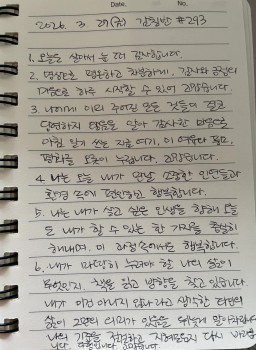 Date. No.
2026. 3. 27(금) 감사일반 #293
1. 오늘을 살아서 눈 떠 감사합니다.
2. 명상으로 평온하고 차분하게, 감사와 긍정의
마음으로 하루 시작할 수 있어 고맙습니다.
3. 나에게 이미 주어진 모든 것들이 결코
당연하지 않음을 알아 감사한 마음으로
아침 일기 쓰는 지금 여기, 이 여유와 풍요,
평화를 오롯이 누립니다. 고맙습니다.
4. 나는 오늘 내가 만날 소중한 인연들과
환경 속에 편안하고 행복합니다.
5. 나는 내가 살고 싶은 인생을 향해 오늘
도 내가 할 수 있는 한 가지를 충실히
해내며, 이 과정 속에서도 행복합니다.
6. 내가 마땅히 누려야 할 나의 삶이
무엇인지, 책을 읽고 방향을 찾고 있습니다.
내가 이건 아니지 않나 라고 생각한
삶이 2번의 이유가 있음을
나의 기준을 다시
니다. 고맙습니다.